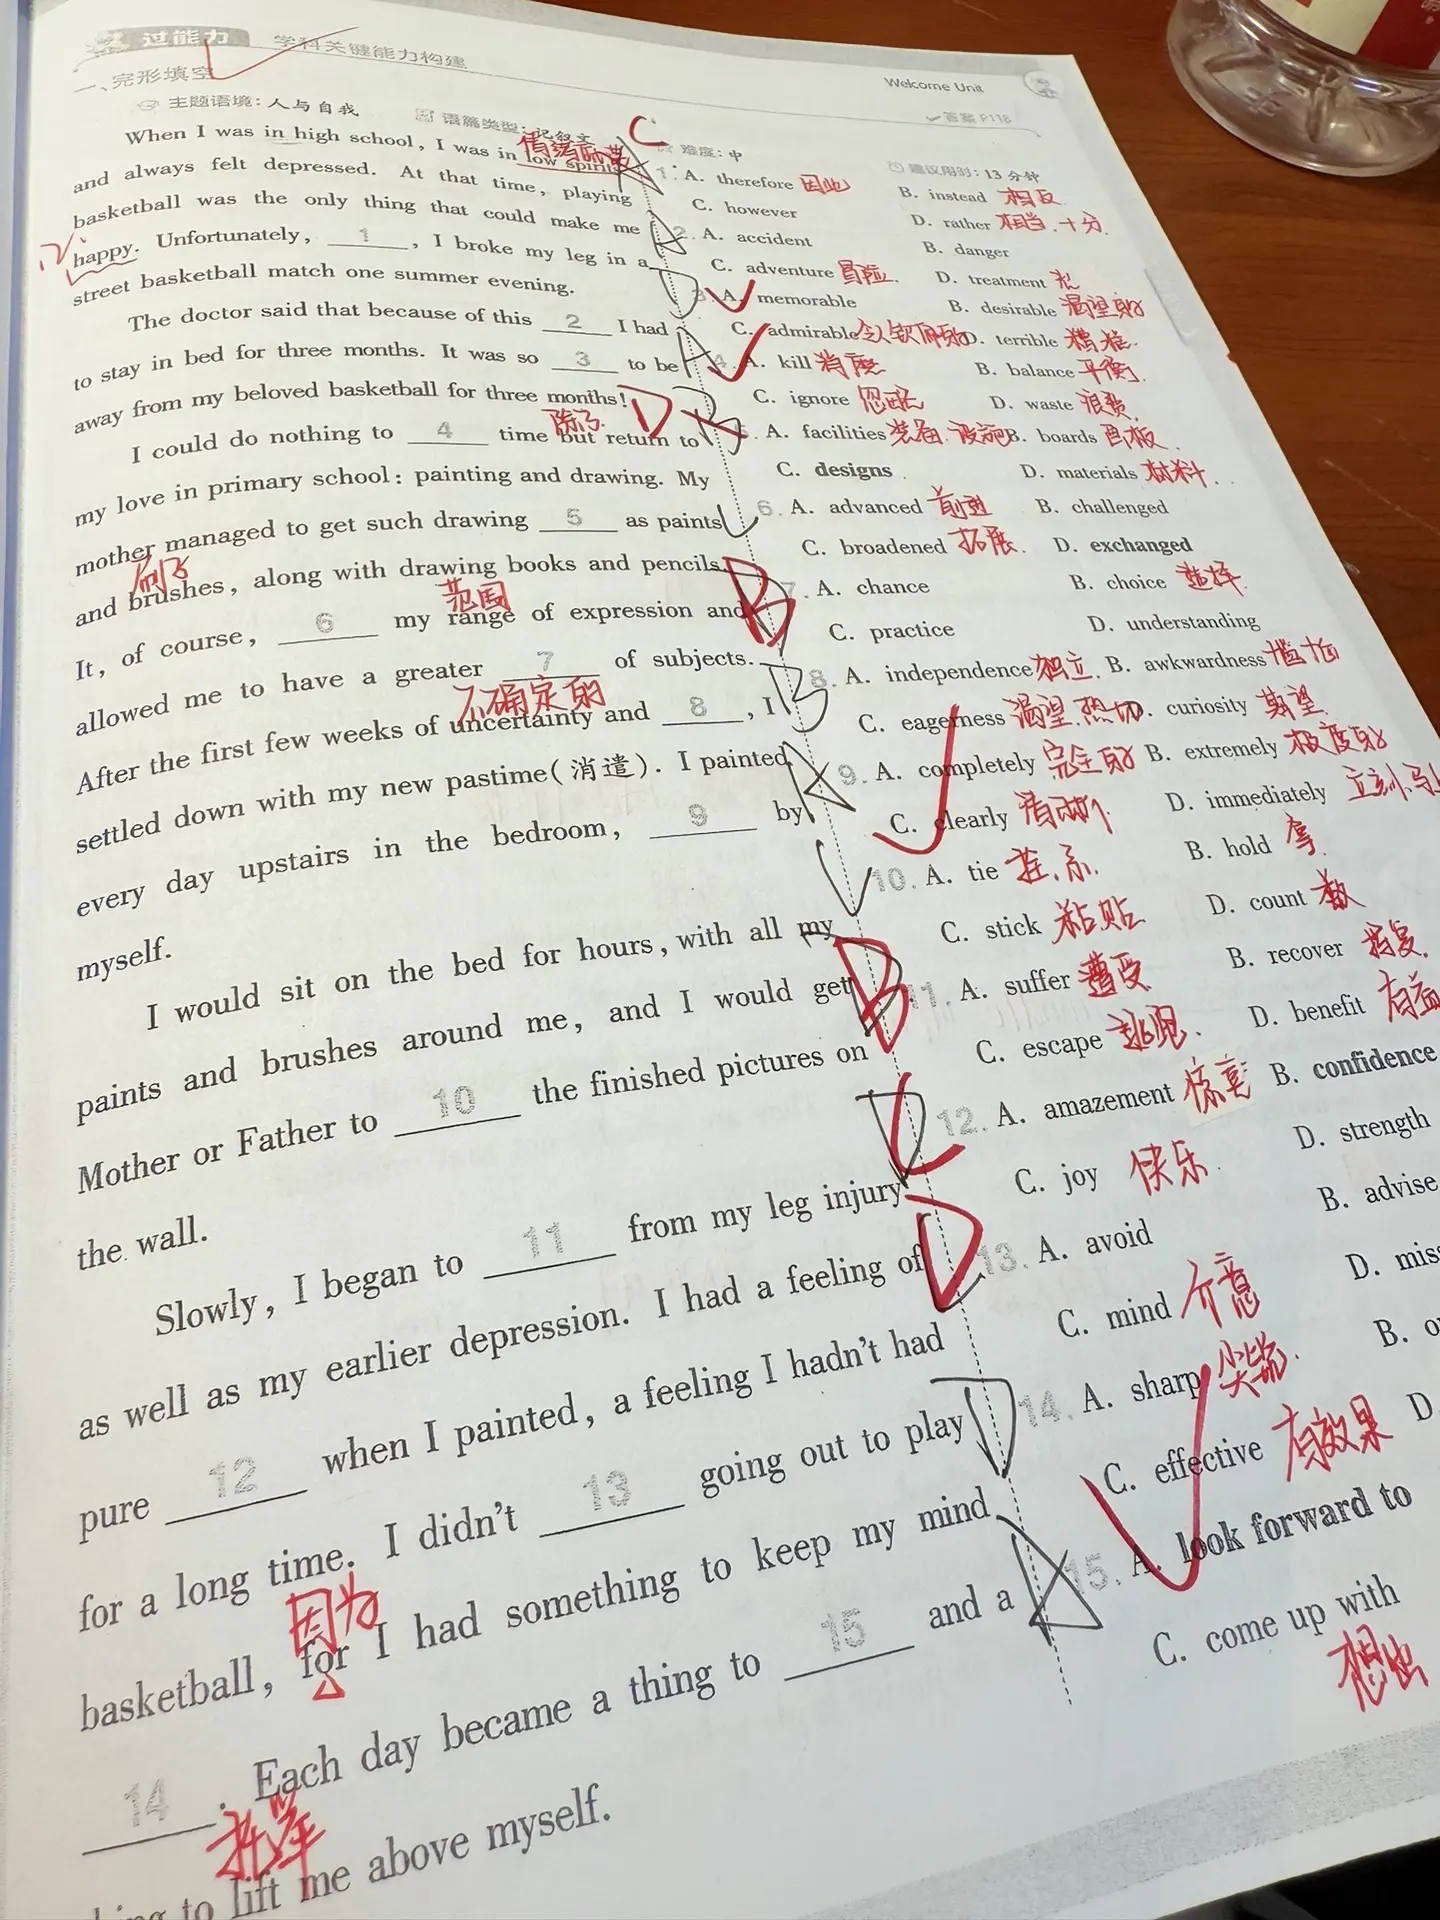 过能力 学科关键能力构建
Welcome Unit
一、完形填空
答案 P118
主题语境：人与自我 语篇类型：记叙文 难度：中 建议用时：13 分钟
When I was in high school, I was in low spirits
and always felt depressed. At that time, playing
basketball was the only thing that could make me
happy. Unfortunately, 1 , I broke my leg in a
street basketball match one summer evening.
The doctor said that because of this 2 I had
to stay in bed for three months. It was so 3 to be
away from my beloved basketball for three months!
除了
I could do nothing to 4 time but return to
my love in primary school: painting and drawing. My
mother managed to get such drawing 5 as paints
刷子
and brushes, along with drawing books and pencils.
范围
It, of course, 6 my range of expression and
allowed me to have a greater 7 of subjects.
不确定的
After the first few weeks of uncertainty and 8 , I
settled down with my new pastime(消遣). I painted
every day upstairs in the bedroom, 9 by
myself.
I would sit on the bed for hours, with all my
paints and brushes around me, and I would get
Mother or Father to 10 the finished pictures on
the wall.
Slowly, I began to 11 from my leg injury
as well as my earlier depression. I had a feeling of
pure 12 when I painted, a feeling I hadn't had
for a long time. I didn't 13 going out to play
因为
basketball, for I had something to keep my mind
14 . Each day became a thing to 15 and a
to lift me above myself.
C
1. A. therefore 因此 B. instead 相反
C. however D. rather 相当.十分.
2. A. accident B. danger
C. adventure 冒险. D. treatment
3. A. memorable B. desirable 渴望的
C. admirable 令人钦佩的 D. terrible 糟糕.
4. A. kill 消磨 B. balance 平衡.
C. ignore 忽略 D. waste 浪费.
D
5. A. facilities 装备.设施 B. boards 画板.
C. designs D. materials 材料.
6. A. advanced 前进 B. challenged
C. broadened 拓展. D. exchanged
B
7. A. chance B. choice 选择.
C. practice D. understanding
8. A. independence 独立. B. awkwardness 尴尬
C. eagerness 渴望.热切 D. curiosity 期望.
9. A. completely 完全的 B. extremely 极度的
C. clearly 清晰 D. immediately 立刻.马上
10. A. tie 连系. B. hold 拿.
C. stick 粘贴 D. count 数
B
11. A. suffer 遭受 B. recover 恢复.
C. escape 逃跑. D. benefit 有益
C
12. A. amazement 惊喜 B. confidence
C. joy 快乐. D. strength
D
13. A. avoid B. advise
C. mind 介意 D. mis
14. A. sharp 尖锐. B. o
C. effective 有效果 D
15. A. look forward to
C. come up with
想出